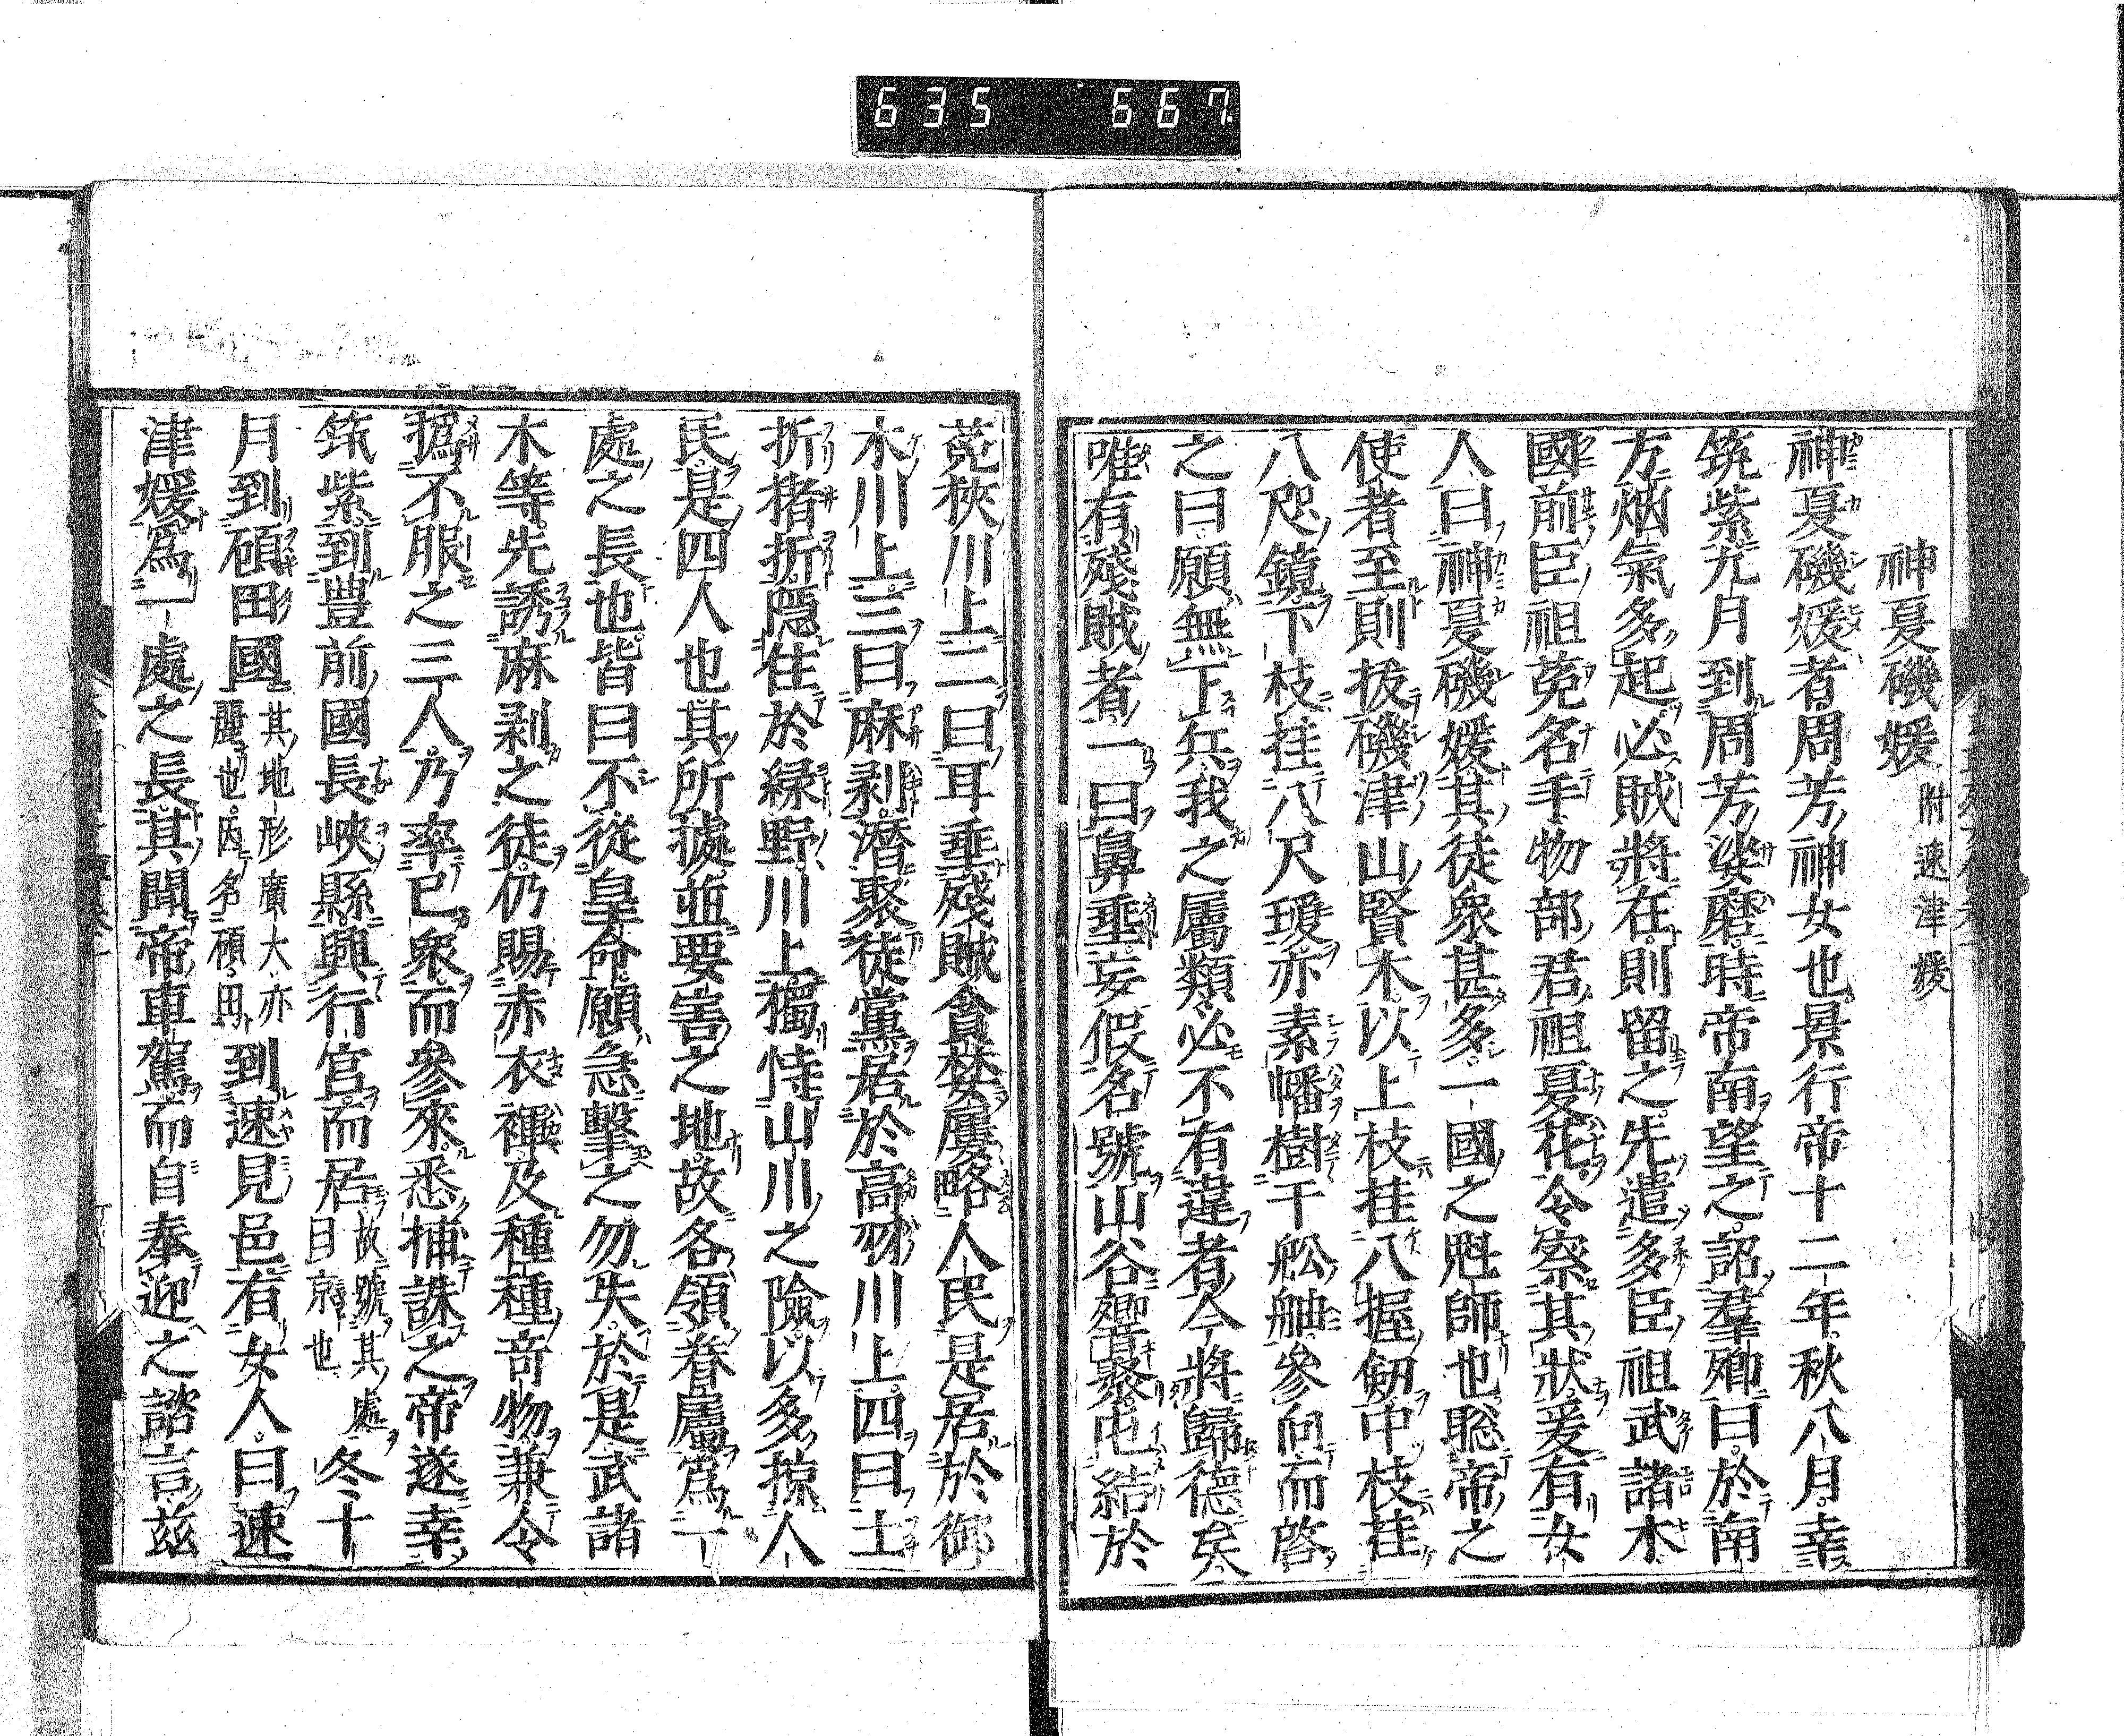 635 667
神夏磯媛 附速津媛
神夏磯媛者周芳神女也景行帝十二年秋八月幸
筑紫九月到周芳娑磨時帝南望之詔羣卿曰於南
方烟氣多起必賊將在則留之先遣多臣祖武諸木
國前臣祖菟名手物部君祖夏花令察其狀爰有女
人曰神夏磯媛其徒衆甚多一國之魁師也聆帝之
使者至則拔磯津山賢木以上枝挂八握劔中枝挂
八咫鏡下枝挂八尺瓊亦素幡樹于舩舳參向而啓
之曰願無下兵我之屬類必不有違者今將歸德矣
唯有殘賊者一曰鼻垂妄假名號山谷響聚屯結於
菟狹川上二曰耳垂殘賊貪婪屢略人民是居於御
木川上三曰麻剥潛聚徒黨居於高羽川上四曰土
折猪折隱住於緑野川上獨恃山川之險以多掠人
民是四人也其所據並要害之地故各領眷屬爲一
處之長也皆曰不從皇命願急擊之勿失於是武諸
木等先誘麻剥之徒仍賜赤衣褌及種種奇物兼令
撝不服之三人乃率己衆而參來悉捕誅之帝遂幸
筑紫到豊前國長峽縣興行宮而居故號其處目京也冬十
月到碩田國其地形廣大亦麗也因名碩田到速見邑有女人曰速
津媛爲一處之長其聞帝車駕而自奉迎之諮言茲